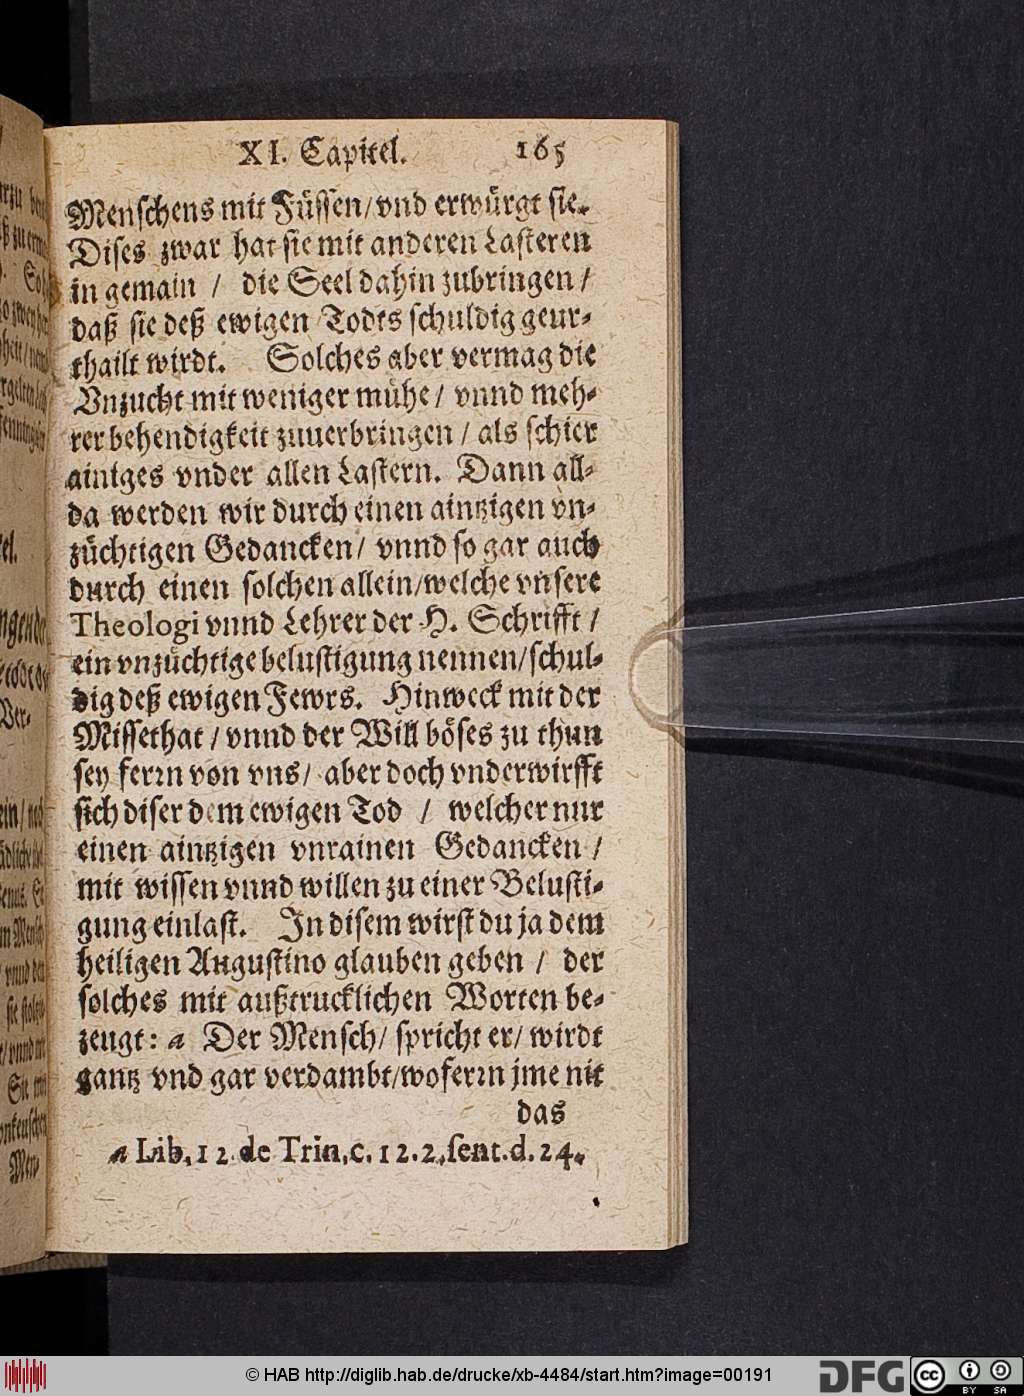 XI. Capitel. 165
Menschens mit Füssen/vnd erwürgt sie.
Dises zwar hat sie mit anderen Lasteren
in gemain / die Seel dahin zubringen /
daß sie deß ewigen Todts schuldig geur-
thailt wirdt. Solches aber vermag die
Vnzucht mit weniger mühe / vnnd meh-
rer behendigkeit zuuerbringen / als schier
ainiges vnder allen Lastern. Dann all-
da werden wir durch einen aintzigen vn-
züchtigen Gedancken/ vnnd so gar auch
durch einen solchen allein/welche vnsere
Theologi vnnd Lehrer der H. Schrifft /
ein vnzüchtige belustigung nennen/schul-
dig deß ewigen Fewrs. Hinweck mit der
Missethat / vnnd der Will böses zu thun
sey ferrn von vns/ aber doch vnderwirfft
sich diser dem ewigen Tod / welcher nur
einen aintzigen vnrainen Gedancken /
mit wissen vnnd willen zu einer Belusti-
gung einlast. In disem wirst du ja dem
heiligen Augustino glauben geben / der
solches mit außtrucklichen Worten be-
zeugt: a Der Mensch/ spricht er/ wirdt
gantz vnd gar verdambt/woferrn jme nit
das
a Lib. 12 de Trin. c. 12. 2. sent. d. 24.
© HAB http://diglib.hab.de/drucke/xb-4484/start.htm?image=00191
DFG
cc BY SA